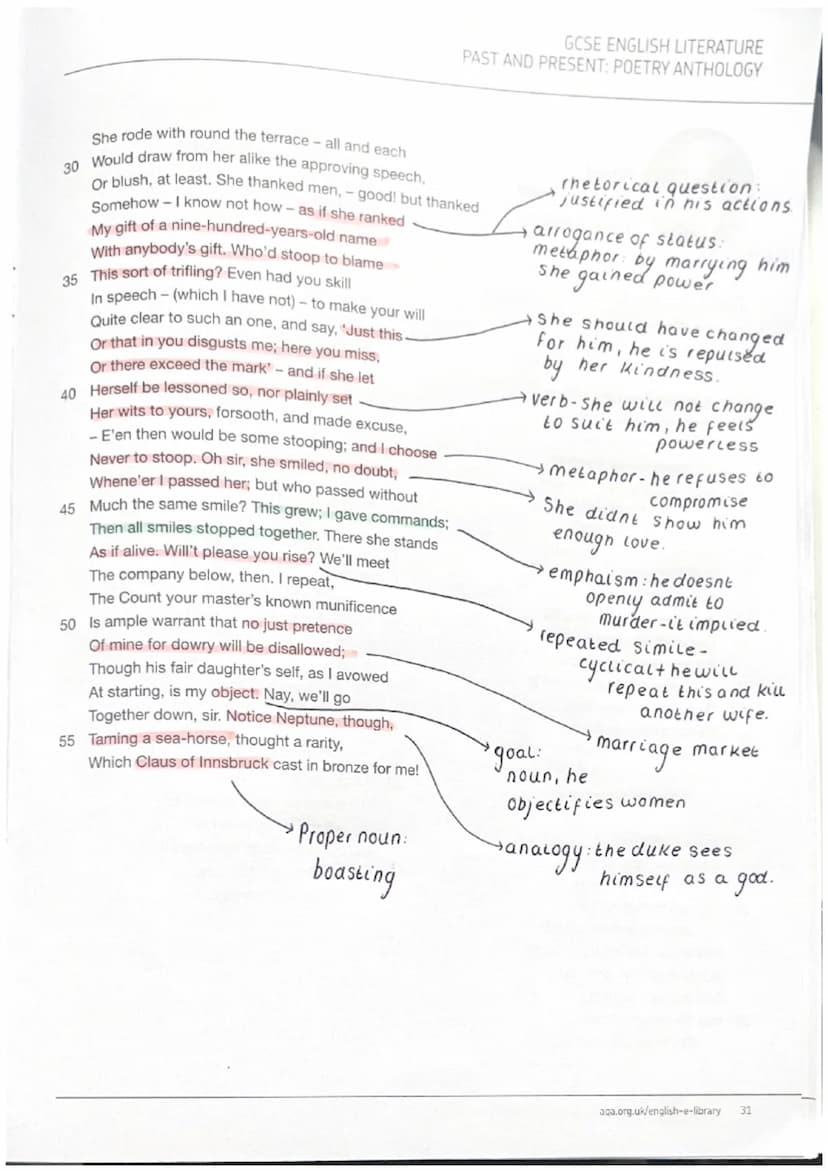 GCSE ENGLISH LITERATURE
PAST AND PRESENT: POETRY ANTHOLOGY
She rode with round the terrace – all and each
30 Would draw from her alike the approving speech,
Or blush, at least. She thanked men, – good! but thanked
Somehow – I know not how – as if she ranked
My gift of a nine-hundred-years-old name
With anybody's gift. Who'd stoop to blame
35 This sort of trifling? Even had you skill
In speech – (which I have not) – to make your will
Quite clear to such an one, and say, 'Just this
Or that in you disgusts me; here you miss,
Or there exceed the mark' – and if she let
40 Herself be lessoned so, nor plainly set
Her wits to yours, forsooth, and made excuse,
– E'en then would be some stooping; and I choose
Never to stoop. Oh sir, she smiled, no doubt,
Whene'er I passed her; but who passed without
45 Much the same smile? This grew; I gave commands;
Then all smiles stopped together. There she stands
As if alive. Will't please you rise? We'll meet
The company below, then. I repeat,
The Count your master's known munificence
50 Is ample warrant that no just pretence
Of mine for dowry will be disallowed;
Though his fair daughter's self, as I avowed
At starting, is my object. Nay, we'll go
Together down, sir. Notice Neptune, though,
55 Taming a sea-horse, thought a rarity,
Which Claus of Innsbruck cast in bronze for me!
rhetorical question:
justified in his actions.
arrogance of status:
metaphor: by marrying him
she gained power
She should have changed
for him, he is repulsed
by her kindness.
verb- she will not change
to suit him, he feels
powerless
metaphor- he refuses to
compromise
She didnt show him
enough love.
emphaism: he doesnt
openly admit to
murder-it implied.
repeated simile-
cyclical + he will
repeat this and kill
another wife.
marriage market
goal:
noun, he
objectifies women
analogy: the duke sees
himself as a god.
Proper noun:
boasting
aqa.org.uk/english-e-library 31